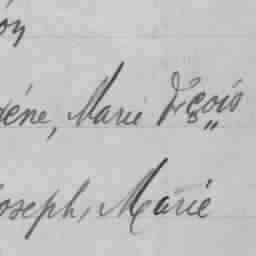 ène, Marie Fçois
Joseph, Marie